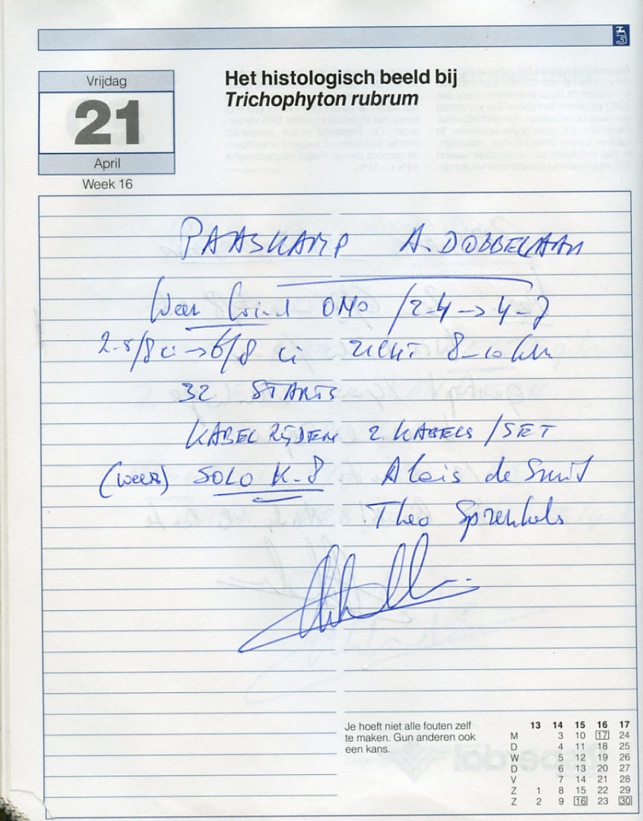 Vrijdag
21
April
Week 16
Het histologisch beeld bij
Trichophyton rubrum
PAASKAMP A. DOBBELAAR
Weer Wind ONO / 2-4 -> 4-7
2-5/8 ci -> 6/8 ci zicht 8-10 km
32 STARTS
KABEL RIJDEN 2 KABELS / SET
(weer) SOLO K-8 Alois de Smit
Theo
Je hoeft niet alle fouten zelf
te maken. Gun anderen ook
een kans.
13 14 15 16 17
M 3 10 17 24
D 4 11 18 25
W 5 12 19 26
D 6 13 20 27
V 7 14 21 28
Z 1 8 15 22 29
Z 2 9 16 23 30